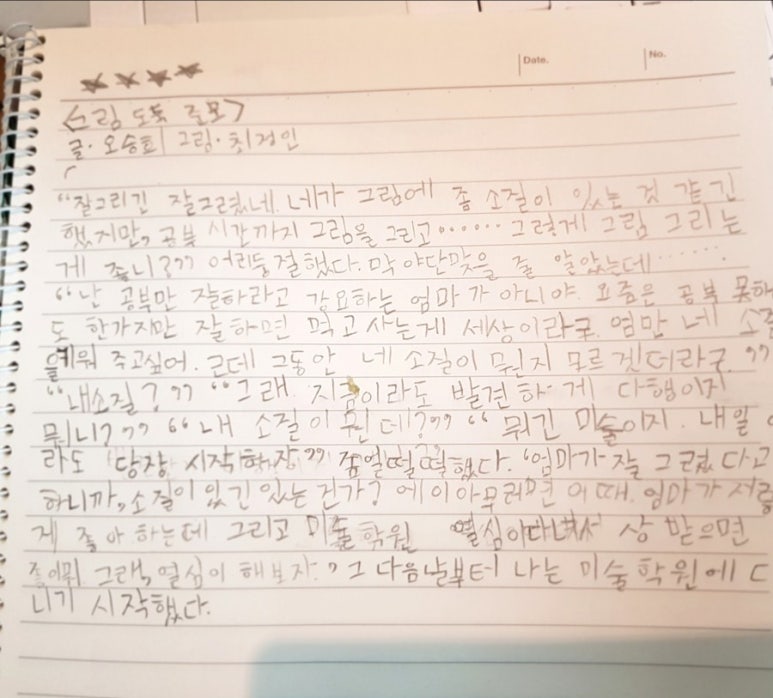 Date.
No.
<그림 도둑 준모>
글·오승희 | 그림·최정인
"잘그리긴 잘그렸네. 네가 그림에 좀 소질이 있는 것 같긴
했지만, 공부 시간까지 그림을 그리고…… 그렇게 그림 그리는
게 좋니?" 어리둥절했다. 막 야단맞을 줄 알았는데…….
"난 공부만 잘하라고 강요하는 엄마가 아니야. 요즘은 공부 못하
도 한가지만 잘하면 먹고 사는게 세상이라구. 엄만 네 소질
을 예워 주고싶어. 근데 그동안 네 소질이 뭔지 모르겟더라구."
"내소질?" "그래. 지금이라도 발견하게 다행이지
뭐니?" "내 소질이 뭔데?" "뭐긴 미술이지. 내일
라도 당장 시작하장" 했다. "엄마가 잘 그렸다고
하니까, 소질이 있긴 있는 건가? 에이 아무러면 어때. 엄마가 저렇
게 좋아하는데 그리고 미술학원 열심이 다녀서 상 받으면
그래, 열심이 해보자." 그 다음날부터 나는 미술학원에 다
니기 시작했다.